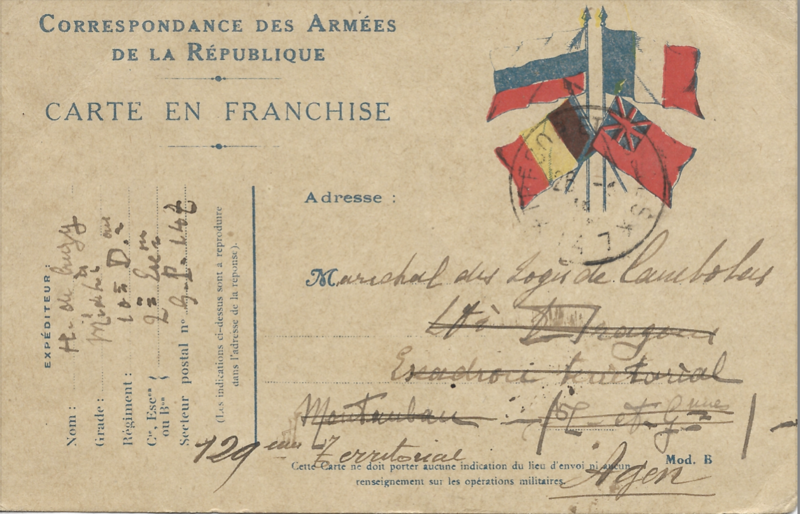 CORRESPONDANCE DES ARMÉES
DE LA RÉPUBLIQUE
CARTE EN FRANCHISE
Adresse :
Maréchal des Logis de Cambolas
10è Dragons
Escadron territorial
Montauban
(SL et Gnne)
129ème Territorial
Agen
Cette Carte ne doit porter aucune indication du lieu d'envoi ni aucun
renseignement sur les opérations militaires.
Mod. B
EXPÉDITEUR :
Nom : H. de
Grade : M
Régiment : 10è D.
Cie, Escon
ou Bie
2è
Secteur postal n°
(Les indications ci-dessus sont à reproduire
dans l'adresse de la réponse).
TRESOR ET POSTES